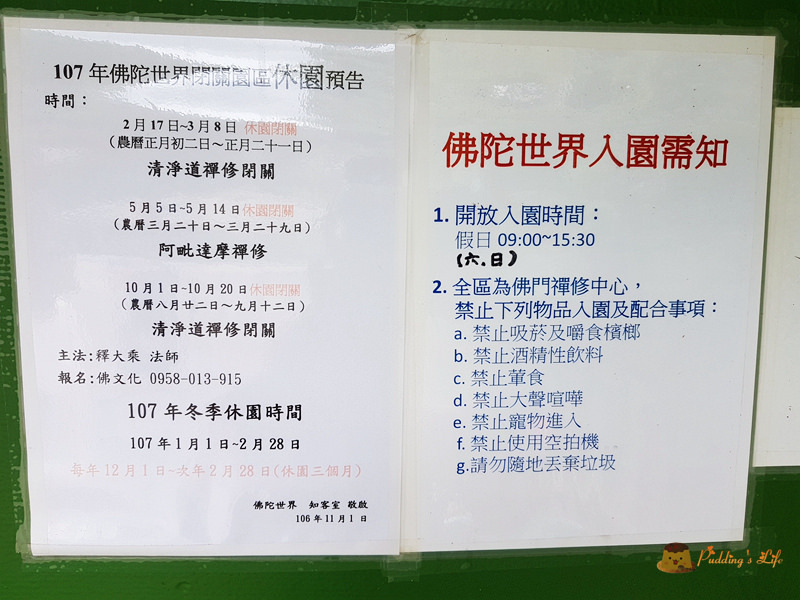 107年佛陀世界閉關園區休園預告
時間：
2月17日~3月8日 休園閉關
（農曆正月初二日～正月二十一日）
清淨道禪修閉關
5月5日~5月14日休園閉關
（農曆三月二十日～三月二十九日）
阿毗達摩禪修
10月1日~10月20日休園閉關
（農曆八月廿二日～九月十二日）
清淨道禪修閉關
主法:釋大乘 法師
報名:佛文化 0958-013-915
107年冬季休園時間
107年1月1日~2月28日
每年12月1日~次年2月28日(休園三個月)
佛陀世界 知客室 敬啟
106年11月1日
佛陀世界入園需知
1. 開放入園時間：
假日 09:00~15:30
(六.日)
2. 全區為佛門禪修中心，
禁止下列物品入園及配合事項：
a. 禁止吸菸及嚼食檳榔
b. 禁止酒精性飲料
c. 禁止葷食
d. 禁止大聲喧嘩
e. 禁止寵物進入
f. 禁止使用空拍機
g.請勿隨地丟棄垃圾
Pudding's Life